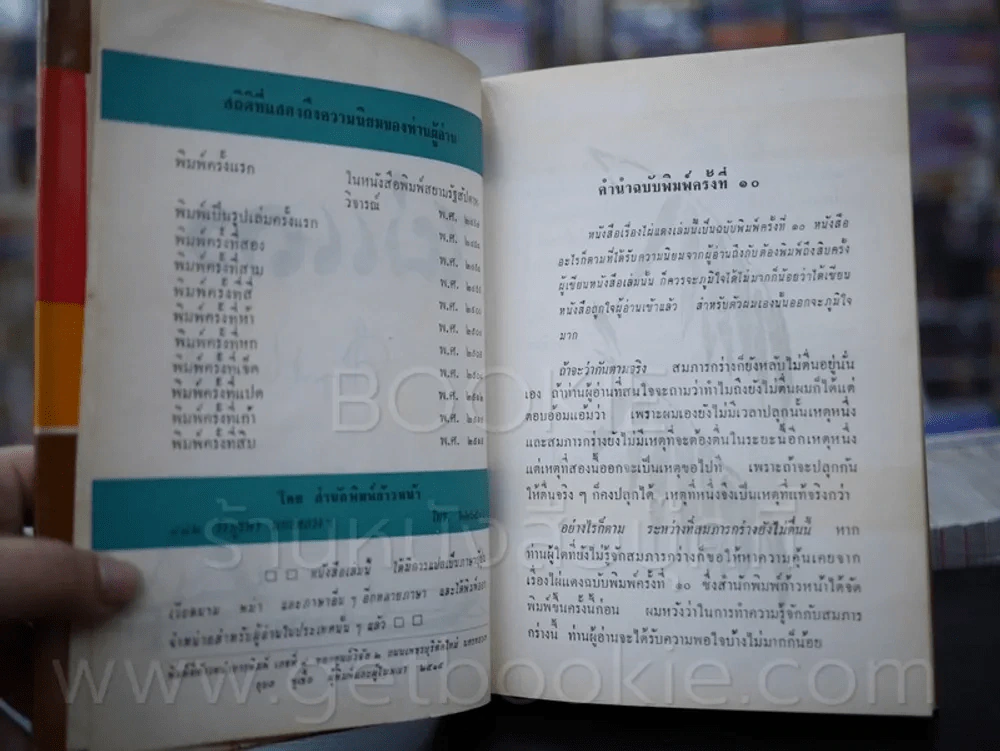 สถิติที่แสดงถึงความนิยมของท่านผู้อ่าน
พิมพ์ครั้งแรก
ในหนังสือพิมพ์สยามรัฐสัปดาห
วิจารณ์
พิมพ์เป็นรูปเล่มครั้งแรก พ.ศ.
พิมพ์ครั้งที่สอง พ.ศ.
พิมพ์ครั้งที่สาม พ.ศ.
พิมพ์ครั้งที่สี่ พ.ศ.
พิมพ์ครั้งที่ห้า พ.ศ. ๒๕๐๐
พิมพ์ครั้งที่หก พ.ศ.
พิมพ์ครั้งที่เจ็ด พ.ศ.
พิมพ์ครั้งที่แปด พ.ศ.
พิมพ์ครั้งที่เก้า พ.ศ.
พิมพ์ครั้งที่สิบ พ.ศ.
โดย สำนักพิมพ์ก้าวหน้า
โทร.
□ □ หนังสือเล่มนี้ ได้มีการแปลเป็นภาษา
เวียดนาม พม่า และภาษาอื่น ๆ อีกหลายภาษา และได้พิมพ์ออก
จำหน่ายสำหรับผู้อ่านในประเทศนั้น ๆ แล้ว □ □
คำนำฉบับพิมพ์ครั้งที่ ๑๐
หนังสือเรื่องไผ่แดงเล่มนี้เป็นฉบับพิมพ์ครั้งที่ ๑๐ หนังสือ
อะไรก็ตามที่ได้รับความนิยมจากผู้อ่านถึงกับต้องพิมพ์ถึงสิบครั้ง
ผู้เขียนหนังสือเล่มนั้น ก็ควรจะภูมิใจได้ไม่มากก็น้อยว่าได้เขียน
หนังสือถูกใจผู้อ่านเข้าแล้ว สำหรับตัวผมเองนั้นออกจะภูมิใจ
มาก
ถ้าจะว่ากันตามจริง สมภารกร่างก็ยังหลับไม่ตื่นอยู่นั่น
เอง ถ้าท่านผู้อ่านที่สนใจจะถามว่าทำไมถึงยังไม่ตื่นผมก็ได้แต่
ตอบอ้อมแอ้มว่า เพราะผมเองยังไม่มีเวลาปลุกนั้นเหตุหนึ่ง
และสมภารกร่างยังไม่มีเหตุที่จะต้องตื่นในระยะนี้อีกเหตุหนึ่ง
แต่เหตุที่สองนี้ออกจะเป็นเหตุขอไปที เพราะถ้าจะปลุกกัน
ให้ตื่นจริง ๆ ก็คงปลุกได้ เหตุที่หนึ่งจึงเป็นเหตุที่แท้จริงกว่า
อย่างไรก็ตาม ระหว่างที่สมภารกร่างยังไม่ตื่นนี้ หาก
ท่านผู้ใดที่ยังไม่รู้จักสมภารกร่างก็ขอให้หาความคุ้นเคยจาก
เรื่องไผ่แดงฉบับพิมพ์ครั้งที่ ๑๐ ซึ่งสำนักพิมพ์ก้าวหน้าได้จัด
พิมพ์ขึ้นครั้งนี้ก่อน ผมหวังว่าในการทำความรู้จักกับสมภาร
กร่างนี้ ท่านผู้อ่านจะได้รับความพอใจบ้างไม่มากก็น้อย
BOOKIE
ร้านหนังสือบุ๊คกี้
www.getbookie.com